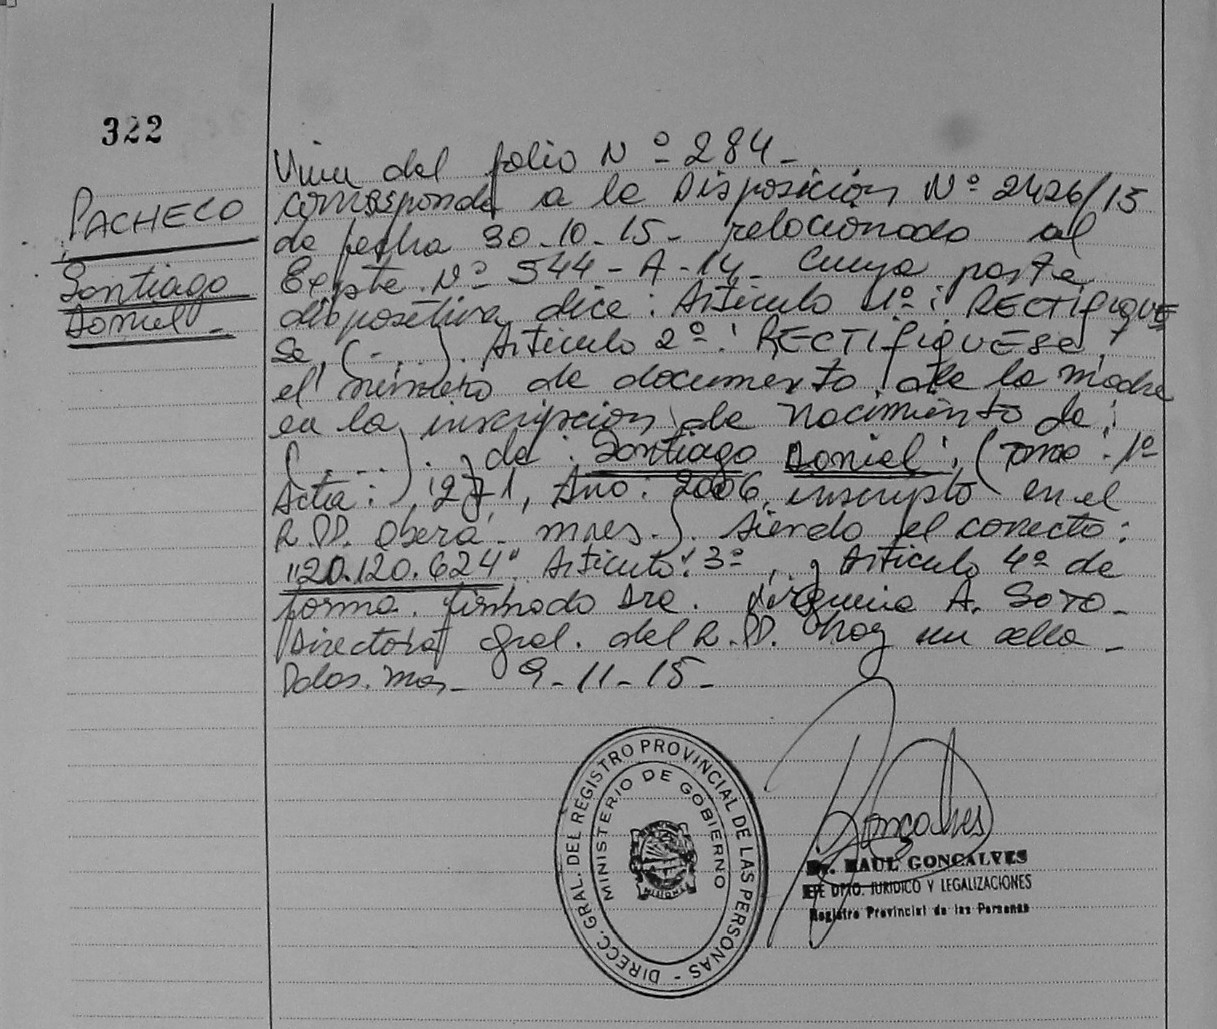 322
PACHECO
Santiago
Daniel -
Viene del folio Nº 284 -
corresponde a la Disposición Nº 2426/15
de fecha 30-10-15 - relacionado al
Expte. Nº 544 - A - 14 - Cuya parte
dispositiva dice: Artículo 1º: RECTIFIQUE
se (- ...). Artículo 2º: RECTIFIQUESE,
el número de documento de la madre
en la inscripción de nacimiento de:
(.....). y de: Santiago Daniel, (Tomo: 1º
Acta: 271, Año: 2006, inscripto en el
R.PP. Oberá - Mnes.). siendo el correcto:
"20.120.624". Artículo: 3º, y Artículo 4º de
forma. firmado Dra. A. SOTO -
Directora Gral. del R.PP. hay un sello -
Pdas. Mnes - 9-11-15 -
DIRECC. GRAL. DEL REGISTRO PROVINCIAL DE LAS PERSONAS -
MINISTERIO DE GOBIERNO
MISIONES
Goncalves
Dr. RAUL GONCALVES
JEFE DPTO. JURIDICO Y LEGALIZACIONES
Registro Provincial de las Personas